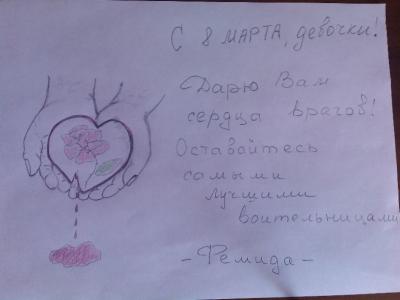 С 8 МАРТА, девочки!
Дарю Вам
сердца врагов!
Оставайтесь
самыми
лучшими
воительницами
- Фемида -